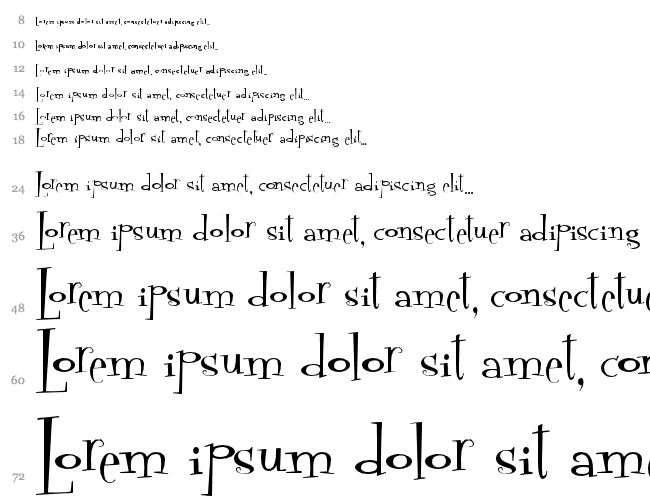 8 Lorem ipsum dolor sit amet, consectetuer adipiscing elit...
10 Lorem ipsum dolor sit amet, consectetuer adipiscing elit...
12 Lorem ipsum dolor sit amet, consectetuer adipiscing elit...
14 Lorem ipsum dolor sit amet, consectetuer adipiscing elit...
16 Lorem ipsum dolor sit amet, consectetuer adipiscing elit...
18 Lorem ipsum dolor sit amet, consectetuer adipiscing elit...
24 Lorem ipsum dolor sit amet, consectetuer adipiscing elit...
36 Lorem ipsum dolor sit amet, consectetuer adipiscing
48 Lorem ipsum dolor sit amet, consectetue
60 Lorem ipsum dolor sit amet, con
72 Lorem ipsum dolor sit ame